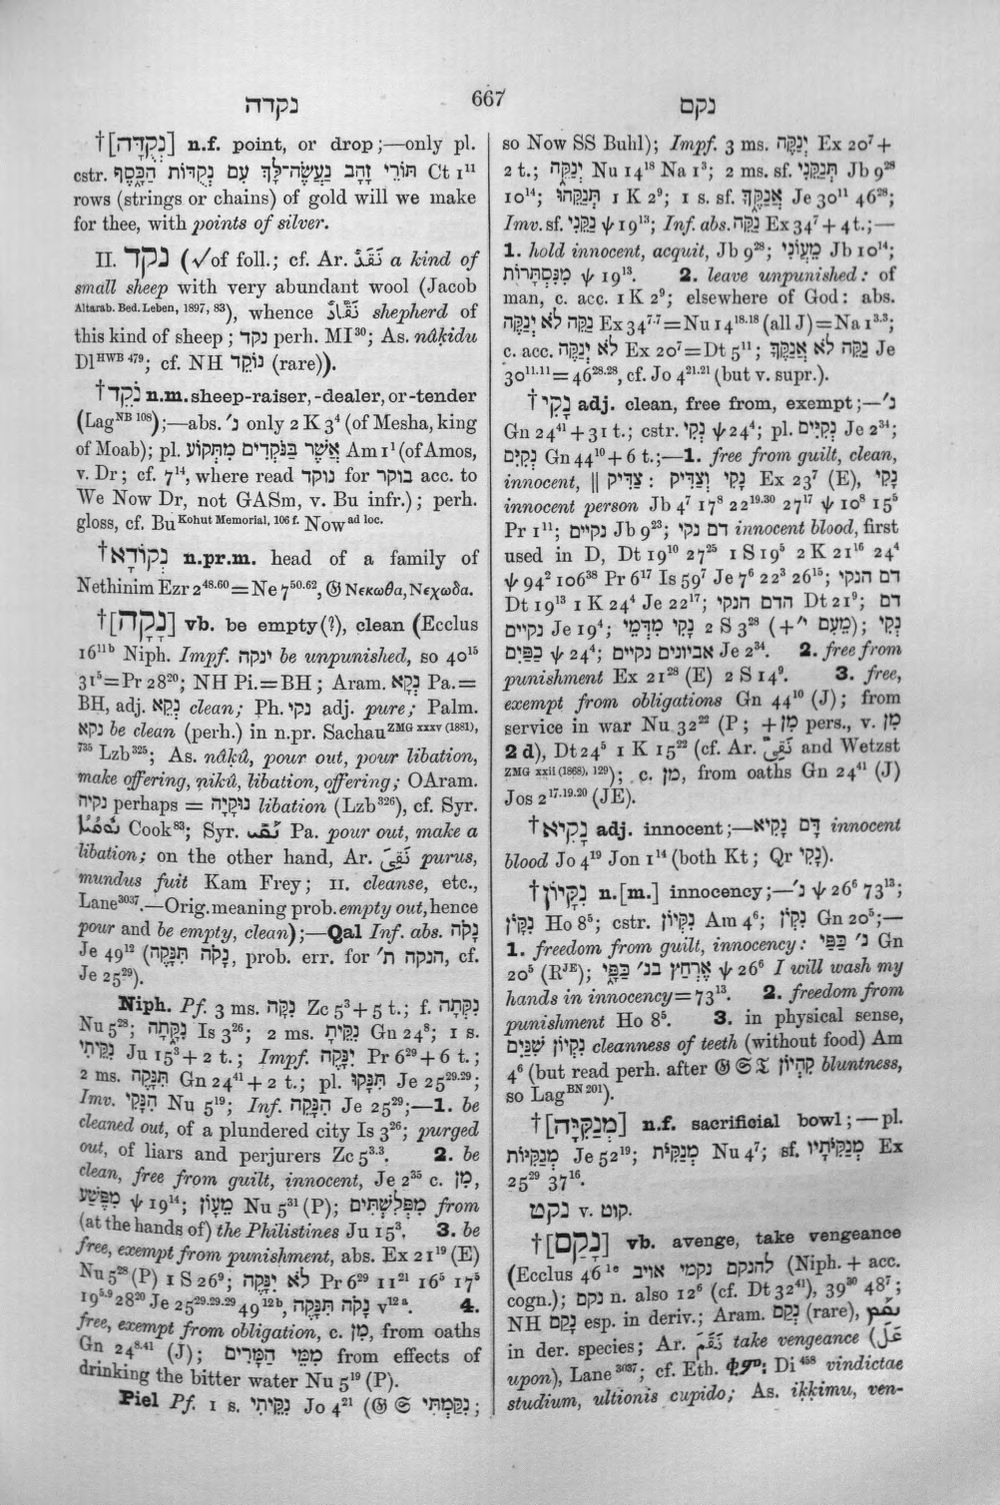 נקדה
667
נקם
†[נְקֻדָּה] n.f. point, or drop;—only pl.
cstr. תּוֹרֵי זָהָב נַעֲשֶׂה־לָּךְ עִם נְקֻדּוֹת הַכָּסֶף Ct 1¹¹
rows (strings or chains) of gold will we make
for thee, with points of silver.
II. נקד (√of foll.; cf. Ar. نَقَدٌ a kind of
small sheep with very abundant wool (Jacob
Altarab. Bed. Leben, 1897, 83), whence نَقَّادٌ shepherd of
this kind of sheep; נקד perh. MI³⁰; As. nâḳidu
Dl HWB 479; cf. NH נוֹקֵד (rare)).
†נֹקֵד n.m. sheep-raiser, -dealer, or -tender
(Lag NB 108);—abs. נ׳ only 2 K 3⁴ (of Mesha, king
of Moab); pl. אֲשֶׁר בַּנֹּקְדִים מִתְּקוֹעַ Am 1¹ (of Amos,
v. Dr; cf. 7¹⁴, where read נוקד for בוקר acc. to
We Now Dr, not GASm, v. Bu infr.); perh.
gloss, cf. Bu Kohut Memorial, 106 f. Now ad loc.
†נְקוֹדָא n.pr.m. head of a family of
Nethinim Ezr 2⁴⁸·⁶⁰=Ne 7⁵⁰·⁶², 𝔊 Νεκωθα, Νεχωδα.
†[נָקָה] vb. be empty(?), clean (Ecclus
16¹¹ᵇ Niph. Impf. ינקה be unpunished, so 40¹⁵
31⁵=Pr 28²⁰; NH Pi.=BH; Aram. נְקָא Pa.=
BH, adj. נְקֵא clean; Ph. נקי adj. pure; Palm.
נקא be clean (perh.) in n.pr. Sachau ZMG xxxv (1881),
735 Lzb³²⁵; As. nâḳû, pour out, pour libation,
make offering, niḳû, libation, offering; OAram.
נקיה perhaps = נוּקְיָה libation (Lzb³²⁶), cf. Syr.
Cook⁸³; Syr. Pa. pour out, make a
libation; on the other hand, Ar. نَقِىَ purus,
mundus fuit Kam Frey; II. cleanse, etc.,
Lane³⁰³⁷.—Orig. meaning prob. empty out, hence
pour and be empty, clean);—Qal Inf. abs. נָקֹה
Je 49¹² (נָקֹה תִּנָּקֶה, prob. err. for הנקה ת׳, cf.
Je 25²⁹).
Niph. Pf. 3 ms. נִקָּה Zc 5³+5 t.; f. נִקְּתָה
Nu 5²⁸; נִקָּתָה Is 3²⁶; 2 ms. נִקִּיתָ Gn 24⁸; 1 s.
נִקֵּיתִי Ju 15³+2 t.; Impf. יִנָּקֶה Pr 6²⁹+6 t.;
2 ms. תִּנָּקֶה Gn 24⁴¹+2 t.; pl. תִּנָּקוּ Je 25²⁹·²⁹;
Imv. הִנָּקִי Nu 5¹⁹; Inf. הִנָּקֵה Je 25²⁹;—1. be
cleaned out, of a plundered city Is 3²⁶; purged
out, of liars and perjurers Zc 5³·³. 2. be
clean, free from guilt, innocent, Je 2³⁵ c. מִן,
מִפֶּשַׁע ψ 19¹⁴; מֵעָוֹן Nu 5³¹ (P); מִפְּלִשְׁתִּים from
(at the hands of) the Philistines Ju 15³. 3. be
free, exempt from punishment, abs. Ex 21¹⁹ (E)
Nu 5²⁸ (P) 1 S 26⁹; לֹא יִנָּקֶה Pr 6²⁹ 11²¹ 16⁵ 17⁵
19⁵·⁹ 28²⁰ Je 25²⁹·²⁹·²⁹ 49¹²ᵇ, נָקֹה תִּנָּקֶה v¹²ᵃ. 4.
free, exempt from obligation, c. מִן, from oaths
Gn 24⁸·⁴¹ (J); מִמֵּי הַמָּרִים from effects of
drinking the bitter water Nu 5¹⁹ (P).
Piel Pf. 1 s. נִקֵּיתִי Jo 4²¹ (𝔊 S נִקַּמְתִּי;
so Now SS Buhl); Impf. 3 ms. יְנַקֶּה Ex 20⁷+
2 t.; יְנַקֶּה Nu 14¹⁸ Na 1³; 2 ms. sf. תְּנַקֵּנִי Jb 9²⁸
10¹⁴; תְּנַקֵּהוּ 1 K 2⁹; 1 s. sf. אֲנַקֶּךָּ Je 30¹¹ 46²⁸;
Imv. sf. נַקֵּנִי ψ 19¹³; Inf. abs. נַקֵּה Ex 34⁷+4 t.;—
1. hold innocent, acquit, Jb 9²⁸; מֵעֲוֹנִי Jb 10¹⁴;
מִנִּסְתָּרוֹת ψ 19¹³. 2. leave unpunished: of
man, c. acc. 1 K 2⁹; elsewhere of God: abs.
נַקֵּה לֹא יְנַקֶּה Ex 34⁷·⁷=Nu 14¹⁸·¹⁸ (all J)=Na 1³·³;
c. acc. לֹא יְנַקֶּה Ex 20⁷=Dt 5¹¹; נַקֵּה לֹא אֲנַקֶּךָּ Je
30¹¹·¹¹=46²⁸·²⁸, cf. Jo 4²¹·²¹ (but v. supr.).
†נָקִי adj. clean, free from, exempt;—נ׳
Gn 24⁴¹+31 t.; cstr. נְקִי ψ 24⁴; pl. נְקִיִּים Je 2³⁴;
נְקִיִּם Gn 44¹⁰+6 t.;—1. free from guilt, clean,
innocent, ‖ צַדִּיק: נָקִי וְצַדִּיק Ex 23⁷ (E), נָקִי
innocent person Jb 4⁷ 17⁸ 22¹⁹·³⁰ 27¹⁷ ψ 10⁸ 15⁵
Pr 1¹¹; נקיים Jb 9²³; דם נקי innocent blood, first
used in D, Dt 19¹⁰ 27²⁵ 1 S 19⁵ 2 K 21¹⁶ 24⁴
ψ 94² 106³⁸ Pr 6¹⁷ Is 59⁷ Je 7⁶ 22³ 26¹⁵; דם הנקי
Dt 19¹³ 1 K 24⁴ Je 22¹⁷; הדם הנקי Dt 21⁹; דם
נקיים Je 19⁴; נָקִי מִדְּמֵי 2 S 3²⁸ (+מֵעִם י׳); נְקִי
כַפַּיִם ψ 24⁴; אביונים נקיים Je 2³⁴. 2. free from
punishment Ex 21²⁸ (E) 2 S 14⁹. 3. free,
exempt from obligations Gn 44¹⁰ (J); from
service in war Nu 32²² (P; +מִן pers., v. מִן
2 d), Dt 24⁵ 1 K 15²² (cf. Ar. نَقِىٌّ and Wetzst
ZMG xxii (1868), 129); c. מִן, from oaths Gn 24⁴¹ (J)
Jos 2¹⁷·¹⁹·²⁰ (JE).
†נָקִיא adj. innocent;—דָּם נָקִיא innocent
blood Jo 4¹⁹ Jon 1¹⁴ (both Kt; Qr נָקִי).
†נִקָּיוֹן n.[m.] innocency;—נ׳ ψ 26⁶ 73¹³;
נִקָּיֹן Ho 8⁵; cstr. נִקְיוֹן Am 4⁶; נִקְיֹן Gn 20⁵;—
1. freedom from guilt, innocency: נ׳ כַּפַּי Gn
20⁵ (Rᴶᴱ); אֶרְחַץ בנ׳ כַּפָּי ψ 26⁶ I will wash my
hands in innocency=73¹³. 2. freedom from
punishment Ho 8⁵. 3. in physical sense,
נִקְיוֹן שִׁנַּיִם cleanness of teeth (without food) Am
4⁶ (but read perh. after 𝔊 S 𝔗 קִהְיוֹן bluntness,
so Lag BN 201).
†[מְנַקִּיָּה] n.f. sacrificial bowl;—pl.
מְנַקִּיּוֹת Je 52¹⁹; מְנַקִּיֹּת Nu 4⁷; sf. מְנַקִּיֹּתָיו Ex
25²⁹ 37¹⁶.
נקט v. קוט.
†[נָקַם] vb. avenge, take vengeance
(Ecclus 46¹ᵉ להנקם נקמי אויב (Niph. + acc.
cogn.); נקם n. also 12⁶ (cf. Dt 32⁴¹), 39³⁰ 48⁷;
NH נָקַם esp. in deriv.; Aram. נְקַם (rare),
in der. species; Ar. نَقَمَ take vengeance (عَلَى
upon), Lane³⁰³⁷; cf. Eth. Di⁴⁵⁸ vindictae
studium, ultionis cupido; As. iḳḳimu, ven-